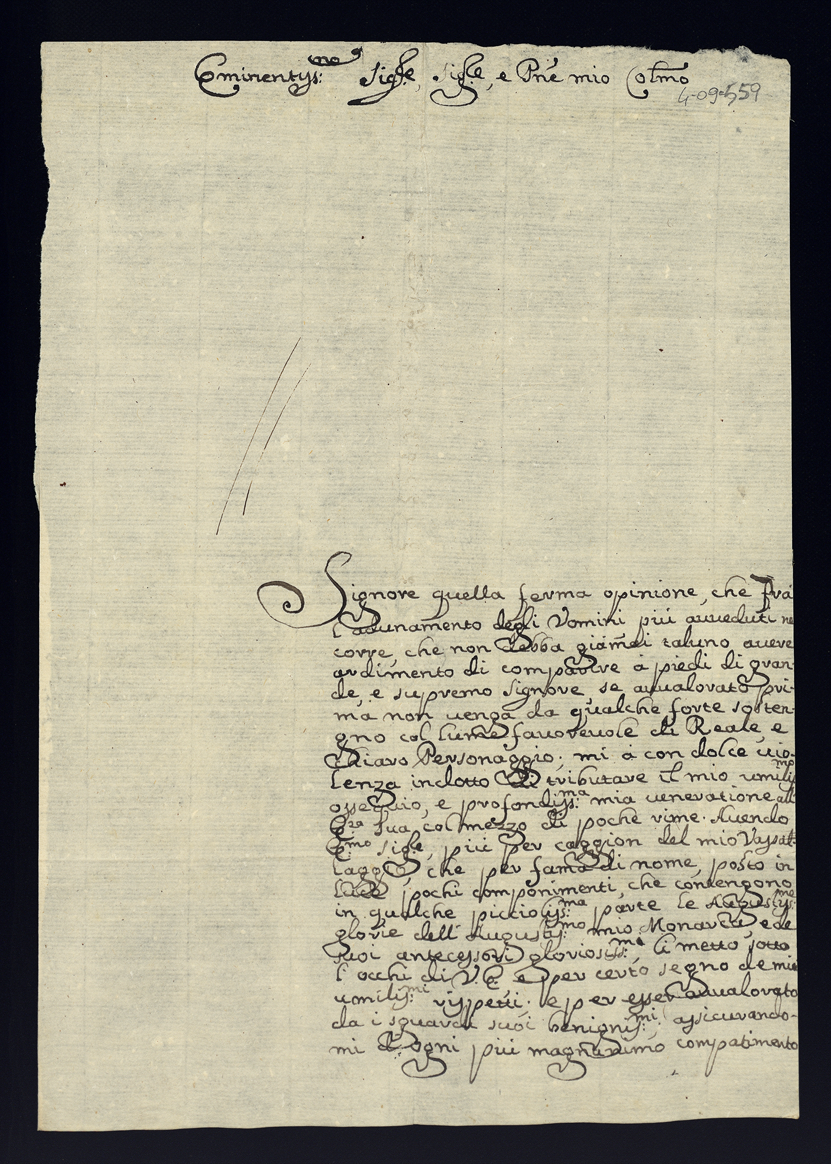 Eminentys:mo Sig:re, Sig:re, e Pne mio Colmo
4-09-559
Signore quella ferma opinione, che frà
l'adunamento degli Vomini più avveduti ne
corre, che non debba giamai taluno avere
ardimento di comparire à piedi di gran-
de, e supremo Signore se avualorato pri-
ma non venga da qualche forte soste-
gno col lume favorevole di Reale, e
Chiaro Personaggio; mi à con dolce vio-
lenza indotto di tributare il mio umilis:mo
ossequio, e profondiss:ma mia veneratione all'
E:za sua col mezzo di poche rime. Avendo
E:mo Sig:re, più per caggion del mio Vassal-
laggio, che per fama di nome, posto in
luce pochi componimenti, che contengono
in qualche picciolis:ma parte le Augustis:me
glorie dell'Augustis:mo mio Monarca, e de
suoi antecessori gloriosis:me li metto sotto
l'occhi di V.E. e per certo segno de miei
umilis:mi rispetti; e per esser avualorato
da i sguardi suoi benignis:mi, assicurando-
mi d'ogni più magnanimo compatimento